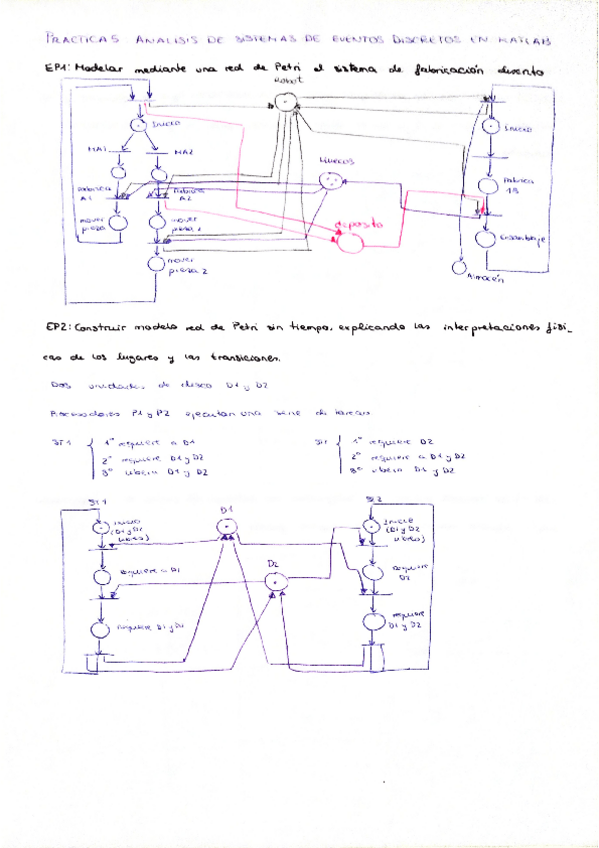 PRACTICA 5 ANALISIS DE SISTEMAS DE EVENTOS DISCRETOS EN MATLAB
EP1: Modelar mediante una red de Petri el sistema de fabricación descrito
Robot
Inicio
Inicio
MA1
MA2
Huecos
Fabrica A1
Fabrica A2
Fabrica 1B
mover pieza
mover pieza 1
deposito
Ensamblaje
mover pieza 2
Almacén
EP2: Construir modelo red de Petri sin tiempo, explicando las interpretaciones físi_
cas de los lugares y las transiciones.
Dos unidades de disco D1 y D2
Procesadores P1 y P2 ejecutan una serie de tareas
ST1
1º requiere a D1
2º requiere D1 y D2
3º libera D1 y D2
1º requiere D2
2º requiere a D1 y D2
3º libera D1 y D2
ST1
D1
ST2
Inicio
(D1 y D2
libres)
Inicio
(D1 y D2
libres)
D2
Requiere a D1
requiere
D2
Requiere D1 y D2
requiere
D1 y D2